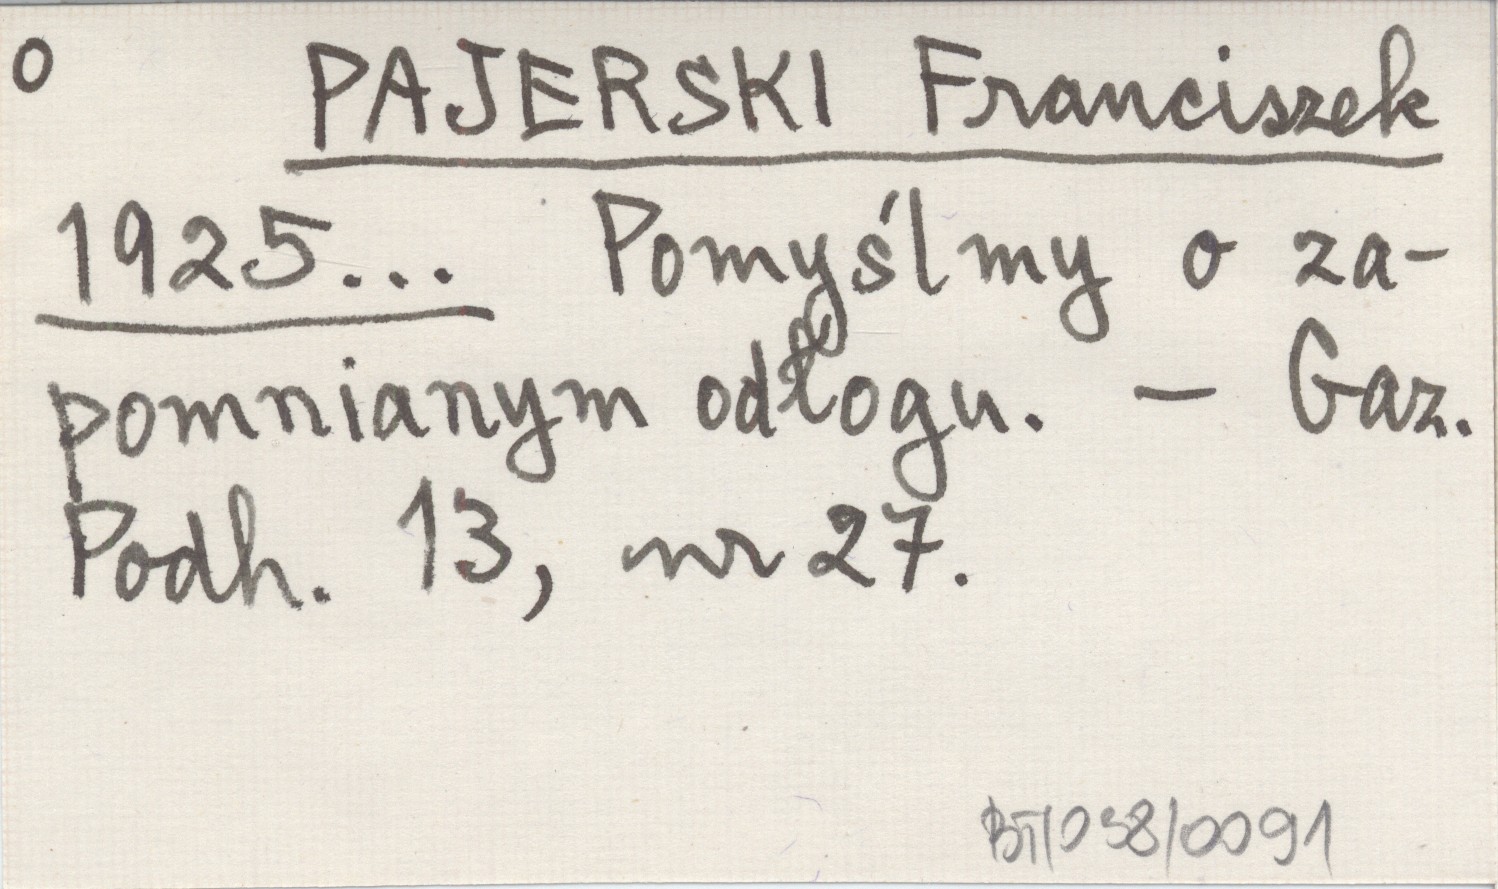 o PAJERSKI Franciszek
1925... Pomyślmy o za-
pomnianym odłogu. – Gaz.
Podh. 13, nr 27.
BT/038/0091